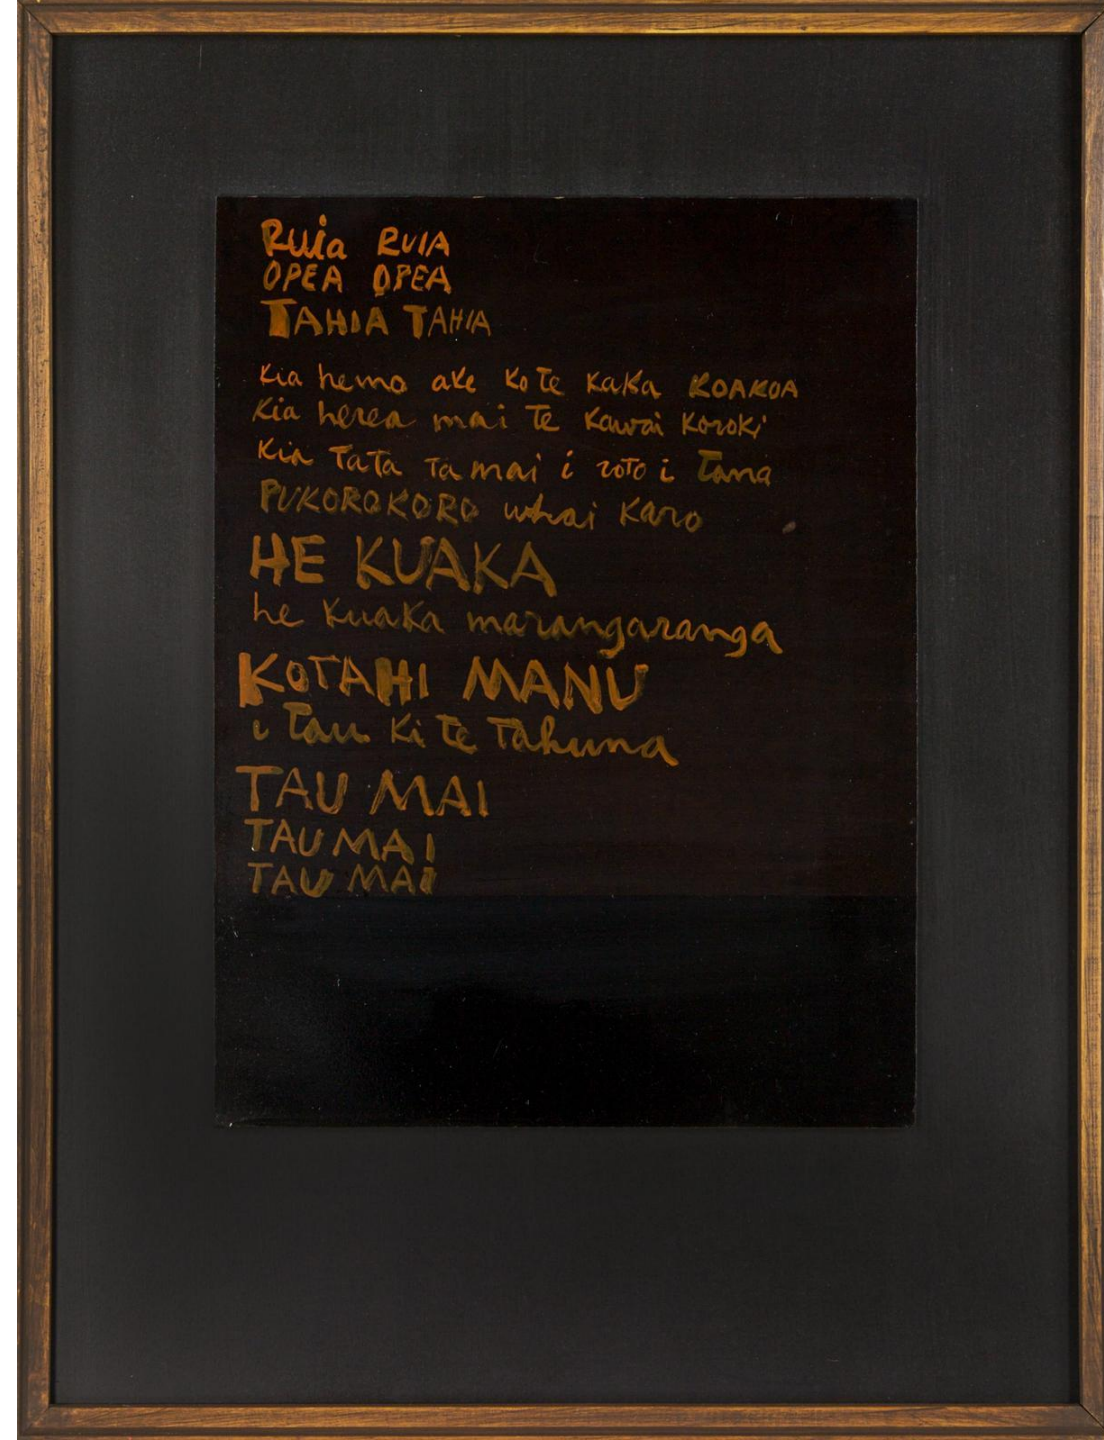 Ruia RUIA
OPEA OPEA
TAHIA TAHIA
Kia hemo ake Ko Te KaKa KOAKOA
Kia herea mai Te Kawai Koroki
Kia TaTa Ta mai i roTo i Tana
PUKOROKORO whai Karo
HE KUAKA
he KuaKa marangaranga
KOTAHI MANU
i Tau Ki Te Tahuna
TAU MAI
TAU MAI
TAU MAI